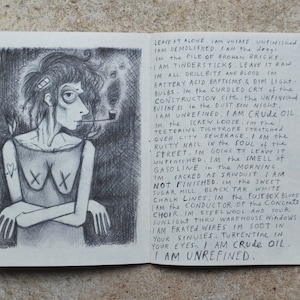 LEAVE IT ALONE. I AM UNSAFE UNFINISHED
I AM DEMOLISHED. I AM the dregs
IN the PILE OF BROKEN BRICKS.
I AM TINDERSTICKS. LEAVE IT RAW
IN ALL DRILLBITS AND BLOOD. IN
BATTERY ACID BAPTISMS & DIM LIGHT
BULBS. IN the CURDLED CRY of the
CONSTRUCTION SITE. the UNFINISHED
BUSINESS IN the DUST BOX NIGHT.
I AM UNREFINED. I AM CRUDE OIL
IN the SCREW LOOSE. IN the
TEETERING TIGHTROPE STRETCHED
OVER CITY SEWERAGE. I AM the
RUSTY NAIL IN the SOUL of the
STREET. IM GOING TO LEAVE IT
UNFINISHED. IM the SMELL OF
GASOLINE IN the MORNING
IM SACRED AS SAWDUST. I AM
NOT FINISHED. IM the SWEET
SUGAR MILL. BLACK TAR WHITE
CHALK LINES. IM the FUSEBOX BLOWN
I AM the CONDUCTOR OF the CONCRETE
CHOIR. IM STEEL WOOL AND SOUR
SUNLIGHT THRU WAREHOUSE WINDOWS
I AM FRAYED WIRES. IM SOOT IN
YOUR SINUSES. TURPENTINE IN
YOUR EYES. I AM CRUDE OIL.
I AM UNREFINED.